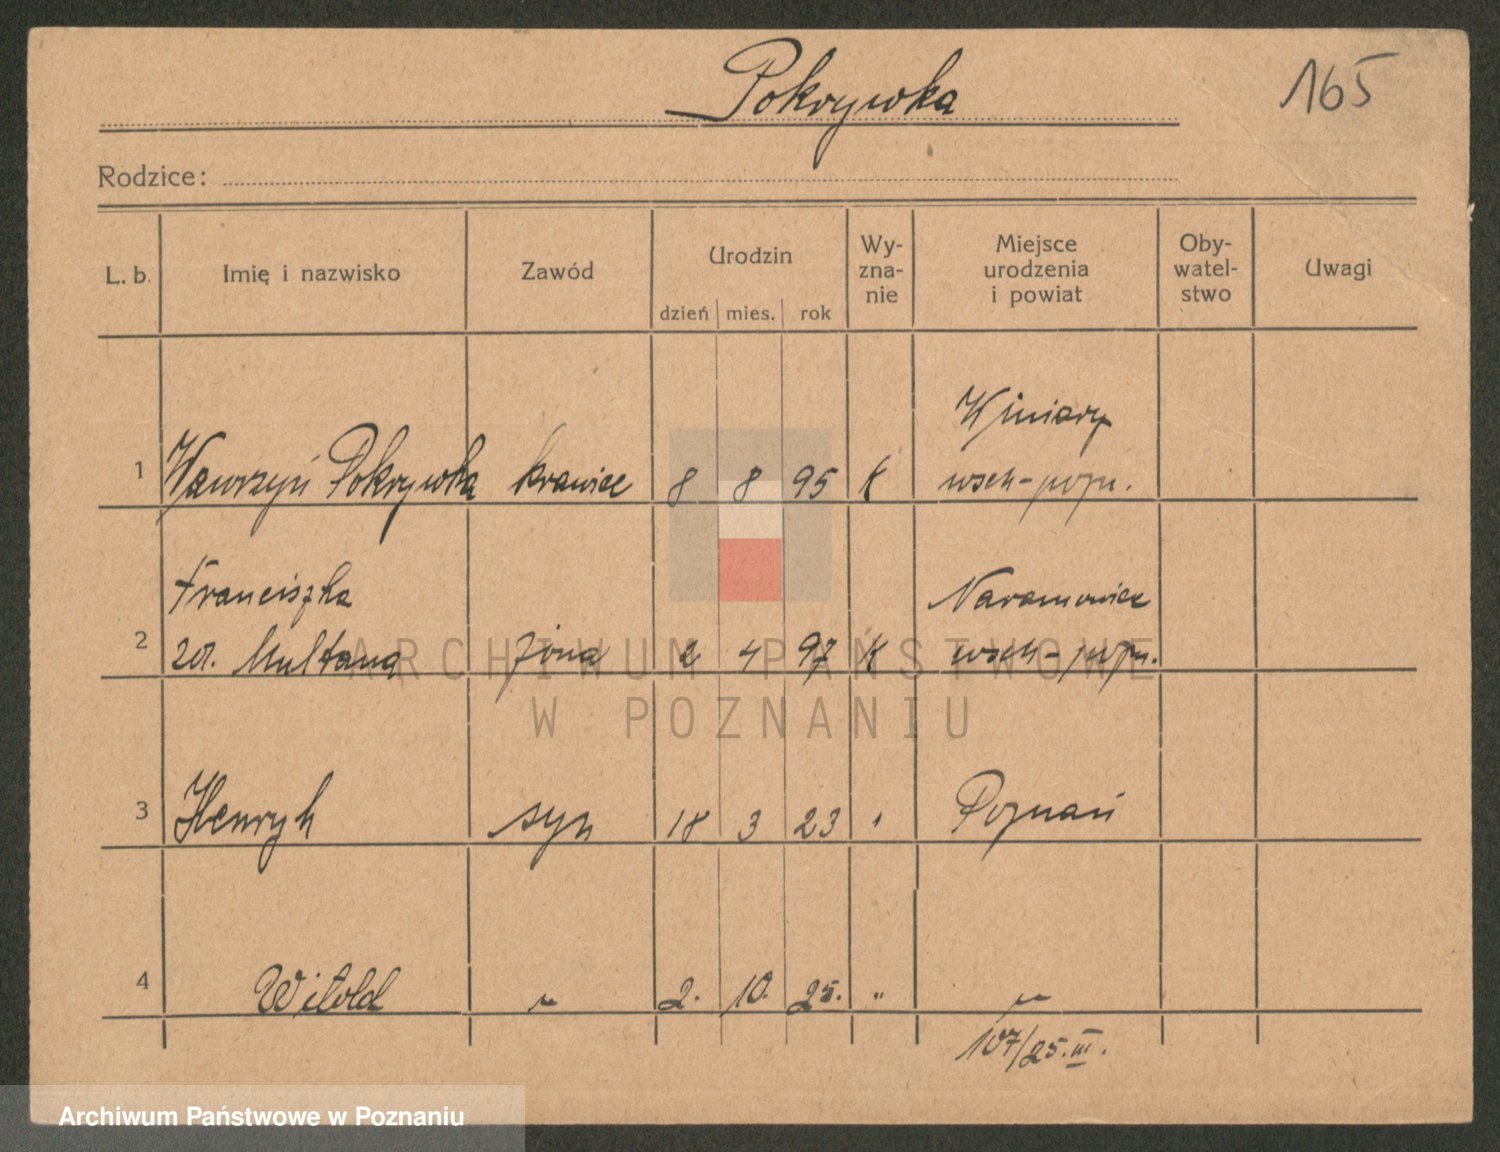 Pokrywka
165
Rodzice:
L. b. Imię i nazwisko Zawód Urodzin Wy-zna-nie Miejsce urodzenia i powiat Oby-watel-stwo Uwagi
dzień mies. rok
Winiary
1 Wawrzyn Pokrywka krawiec 8 8 95 K wsch-pozn.
Franciszka Naramowice
2 Multana żona 2 4 97 K wsch-pozn.
3 Henryk syn 18 3 23 " Poznań
4 Witold " 2. 10. 25. " "
107/25. III.
ARCHIWUM PAŃSTWOWE
W POZNANIU
Archiwum Państwowe w Poznaniu